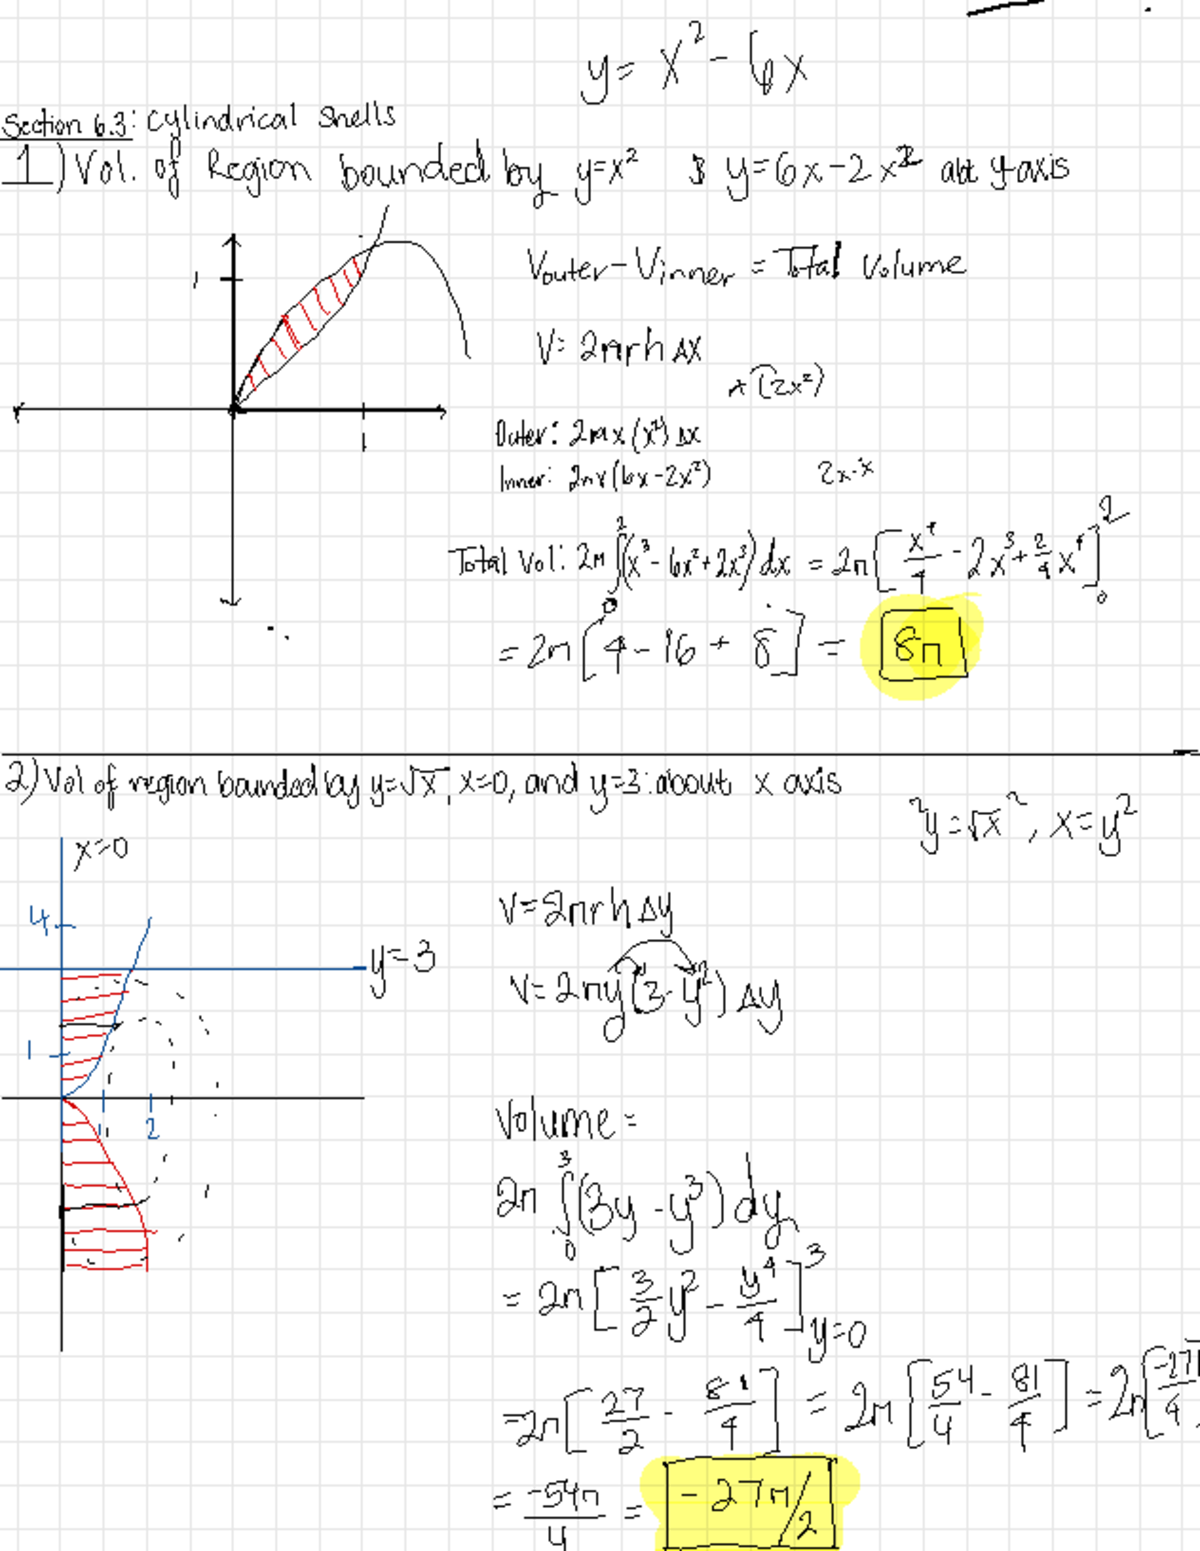 y = x² - 6x
Section 6.3: Cylindrical Shells
1) Vol. of Region bounded by y=x² & y=6x-2x² abt y-axis
Vouter - Vinner = Total Volume
1
V= 2πrh Δx
+(2x²)
1
Outer: 2πx(x²) Δx
Inner: 2πx(6x-2x²)
2x·x
Total Vol: 2π ∫₀² (x³ - 6x² + 2x³) dx = 2π [x⁴/4 - 2x³ + 2/4 x⁴]₀²
= 2π [4 - 16 + 8] = 8π
2) Vol of region bounded by y=√x, x=0, and y=3: about x axis
²y = √x², x = y²
x=0
4
V= 2πrh Δy
y=3
V= 2πy(3-y²) Δy
1
1 2
Volume =
2π ∫₀³ (3y - y³) dy
= 2π [3/2 y² - y⁴/4]³ y=0
= 2π [27/2 - 81/4] = 2π [54/4 - 81/4] = 2π [-27/4
= -54π/4 = -27π/2